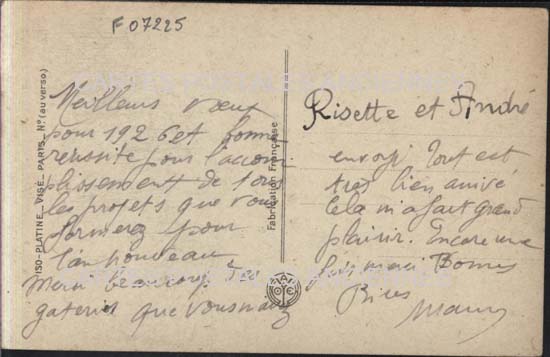 F 07225
Meilleurs voeux
pour 1926 et bonne
réussite pour l'accom
plissement de tous
les projets que vous
formerez pour
l'an nouveau
Merci beaucoup des
gateries que vous m'avez
Risette et André
envoyé tout est
très bien arrivé
Cela m'a fait grand
plaisir. Encore une
fois merci Bonnes
Bises
ISO-PLATINE_VISÉ_PARIS_Nº (au verso)
Fabrication Française